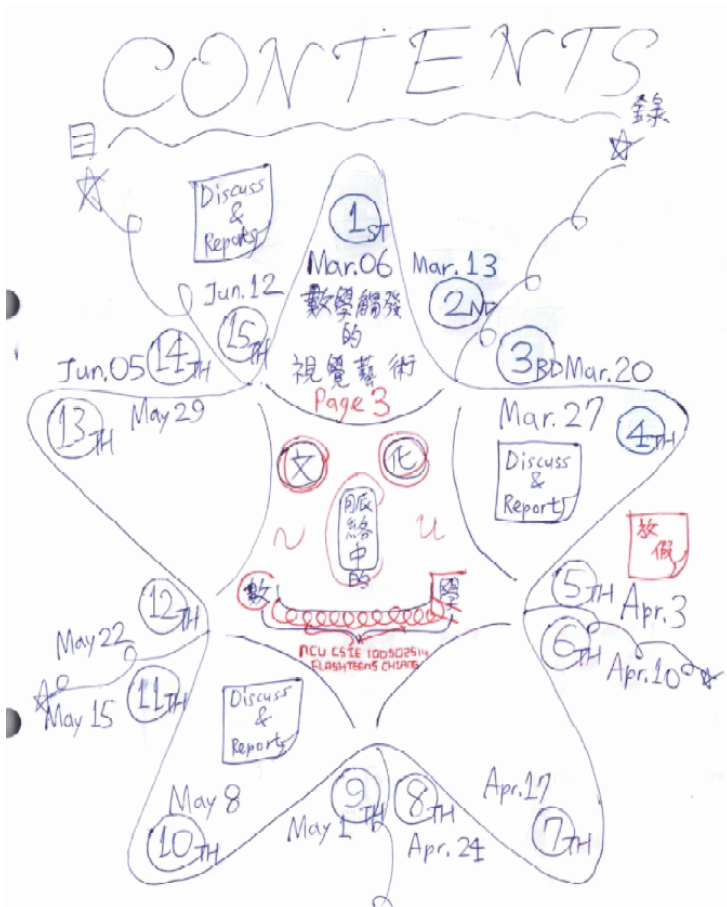 CONTENTS
目 錄
Discuss
&
Reports
1ST
Mar.06
數學觸發
的
視覺藝術
Page 3
Mar.13
2ND
3BD Mar.20
Mar.27
4TH
Discuss
&
Report
放
假
5TH
Apr.3
6TH
Apr.10
Apr.17
7TH
8TH
Apr.24
9TH
May 1
May 8
10TH
Discuss
&
Report
11TH
May 15
12TH
May 22
13TH
May 29
Jun.05 14TH
Jun.12
15TH
文 化
脈
絡
中
的
數 學
NCU CSIE 100502514
FLASHTEENS CHIANG